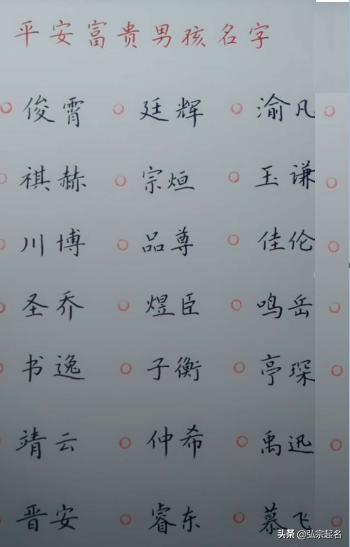 平安富贵男孩名字
俊霄 廷辉 渝凡
祺赫 宗烜 玉谦
川博 品尊 佳伦
圣乔 煜臣 鸣岳
书逸 子衡 亭琛
靖云 仲希 禹迅
晋安 睿东 慕飞
头条 @弘宗起名